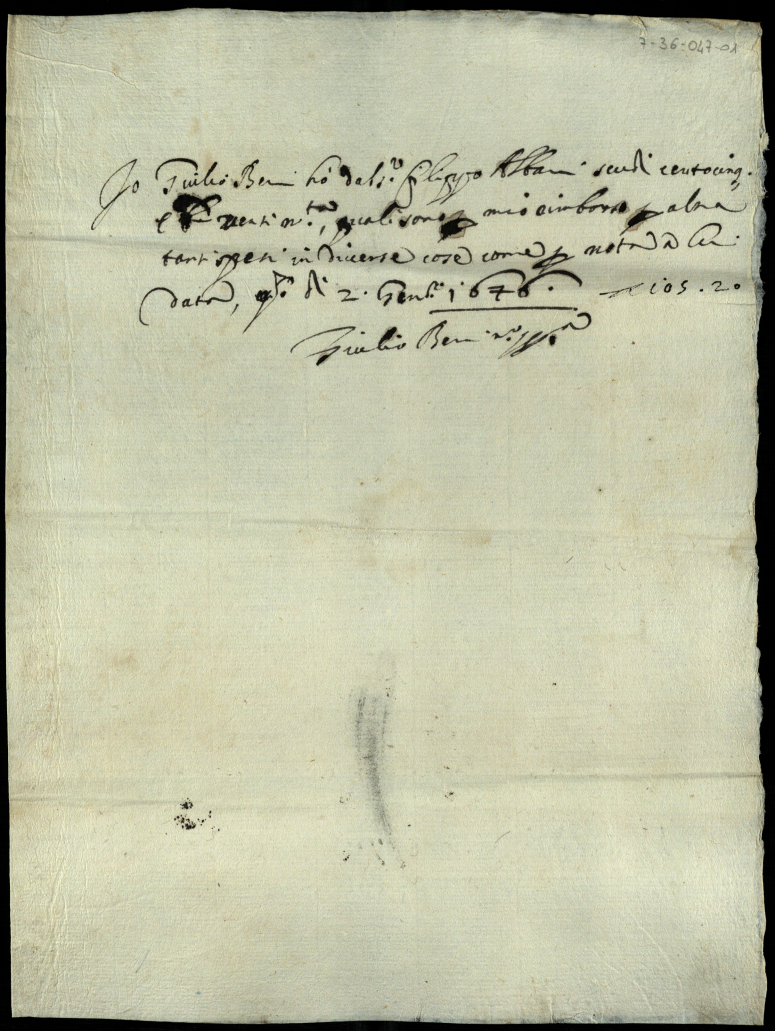 7-36-047-01
Io Giulio Berni hò dal S.r Filippo Albani scudi centocinq.
e venti m.ta, quali sono p mio rimborso p altra
tanti spesi in diverse cose come p nota à lui
data, q.to dì 2. Gen.o 1676. 105.20
Giulio Berni